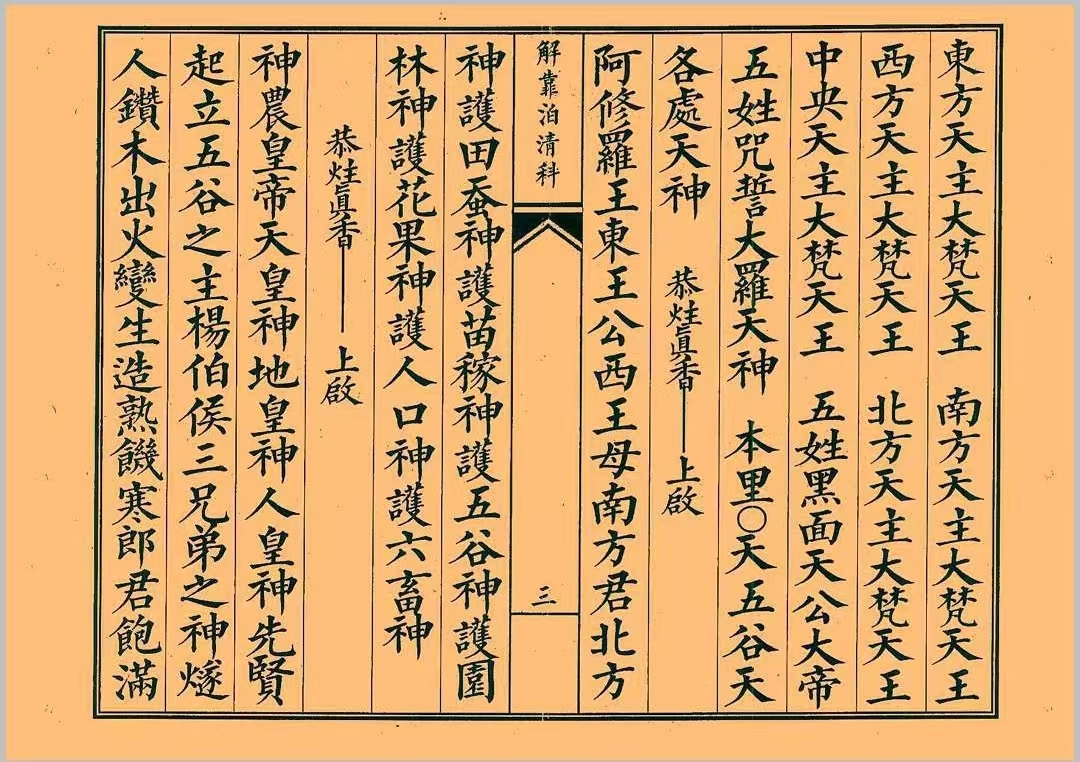 東方天主大梵天王　南方天主大梵天王
西方天主大梵天王　北方天主大梵天王
中央天主大梵天王　五姓黑面天公大帝
五姓咒誓大羅天神　本里○天五谷天
各處天神　恭炷眞香——上啟
阿修羅王東王公西王母南方君北方
解靠泊清科　三
神護田蚕神護苗稼神護五谷神護園
林神護花果神護人口神護六畜神
恭炷眞香——上啟
神農皇帝天皇神地皇神人皇神先賢
起立五谷之主楊伯侯三兄弟之神燧
人鑽木出火變生造熟饑寒郎君飽滿